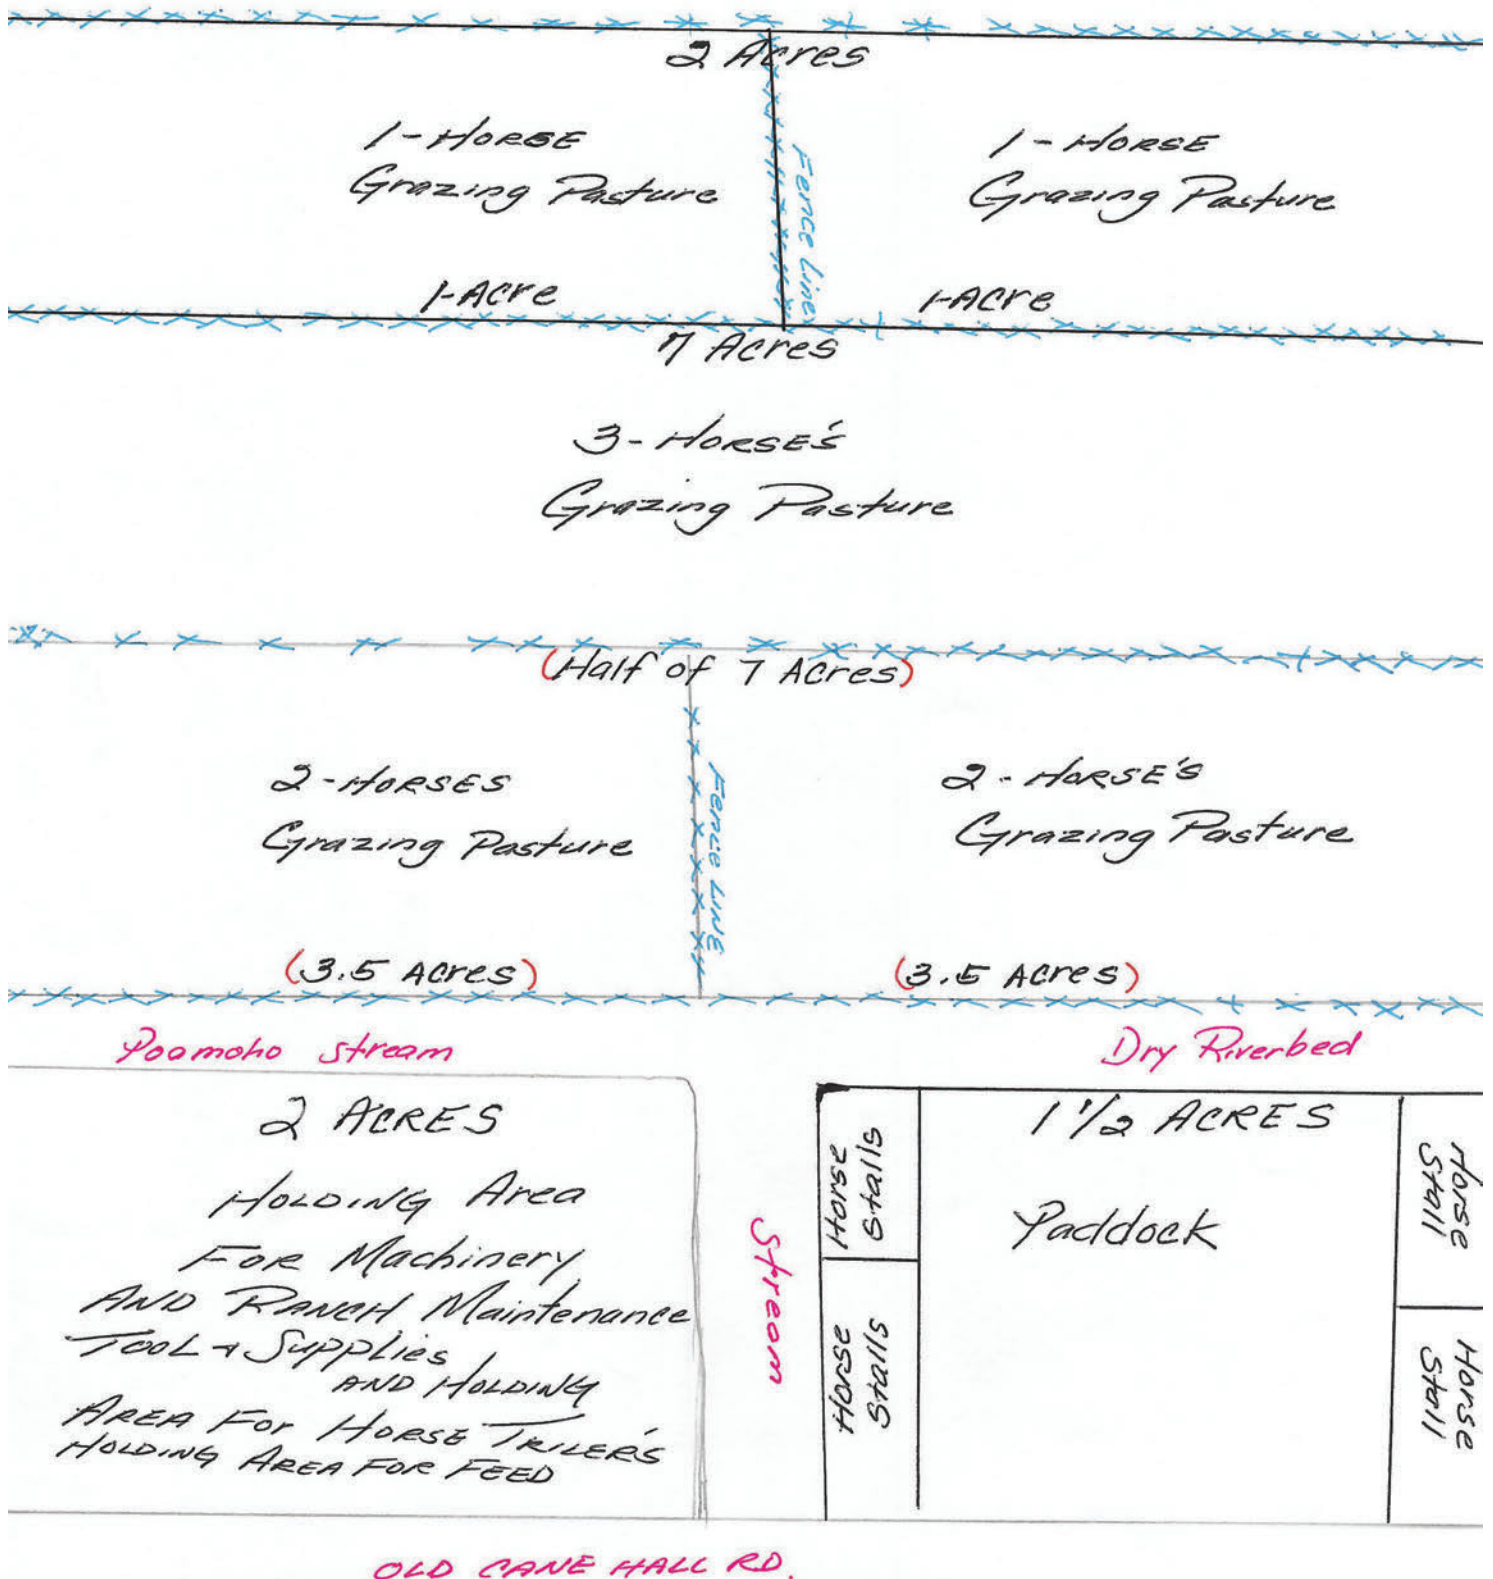 2 Acres
1-HORSE
Grazing Pasture
1-Acre
Fence Line
1-HORSE
Grazing Pasture
1-Acre
7 Acres
3-HORSE'S
Grazing Pasture
(Half of 7 Acres)
2-HORSES
Grazing Pasture
(3.5 Acres)
Fence LINE
2-HORSE'S
Grazing Pasture
(3.5 Acres)
Poamoho Stream
Dry Riverbed
2 ACRES
HOLDING Area
FOR Machinery
AND RANCH Maintenance
TOOL + Supplies
AND HOLDING
AREA For HORSE TRILER'S
HOLDING AREA FOR FEED
Stream
Horse
Stalls
Horse
Stalls
1 1/2 ACRES
Paddock
Horse
Stall
Horse
Stall
OLD CANE HALL RD.